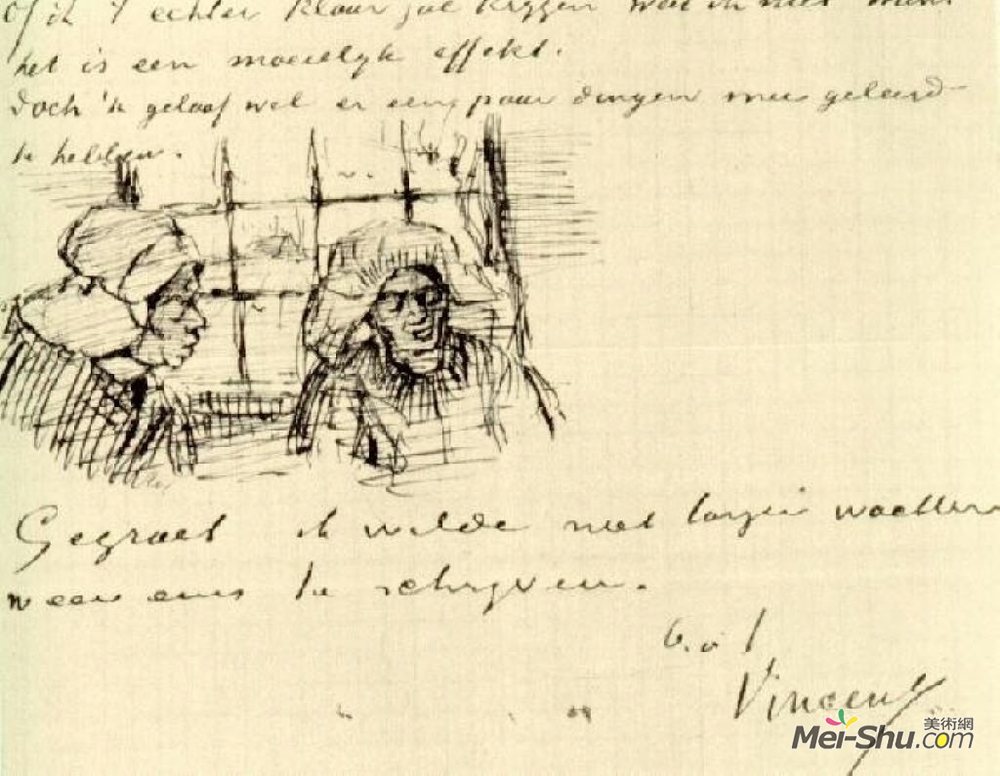 Of ik 't echter klaar zal krygen weet ik niet want
het is een moeielyk effekt.
Doch 'k geloof wel er eens paar dingen mee geleerd
te hebben.
Gegroet ik wilde niet langer wachten
weer eens te schryven.
b. à t.
Vincent
美術網
Mei-Shu.com